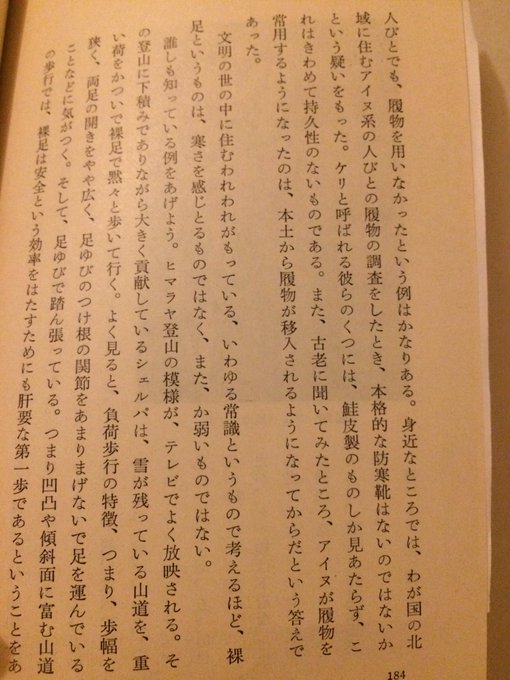 人びとでも、履物を用いなかったという例はかなりある。身近なところでは、わが国の北
域に住むアイヌ系の人びとの履物の調査をしたとき、本格的な防寒靴はないのではないか
という疑いをもった。ケリと呼ばれる彼らのくつには、鮭皮製のものしか見あたらず、こ
れはきわめて持久性のないものである。また、古老に聞いてみたところ、アイヌが履物を
常用するようになったのは、本土から履物が移入されるようになってからだという答えで
あった。
文明の世の中に住むわれわれがもっている、いわゆる常識というもので考えるほど、裸
足というものは、寒さを感じとるものではなく、また、か弱いものではない。
誰しも知っている例をあげよう。ヒマラヤ登山の模様が、テレビでよく放映される。そ
の登山に下積みでありながら大きく貢献しているシェルパは、雪が残っている山道を、重
い荷をかついで裸足で黙々と歩いて行く。よく見ると、負荷歩行の特徴、つまり、歩幅を
狭く、両足の開きをやや広く、足ゆびのつけ根の関節をあまりまげないで足を運んでいる
ことなどに気がつく。そして、足ゆびで踏ん張っている。つまり凹凸や傾斜面に富む山道
の歩行では、裸足は安全という効率をはたすためにも肝要な第一歩であるということをあ
184